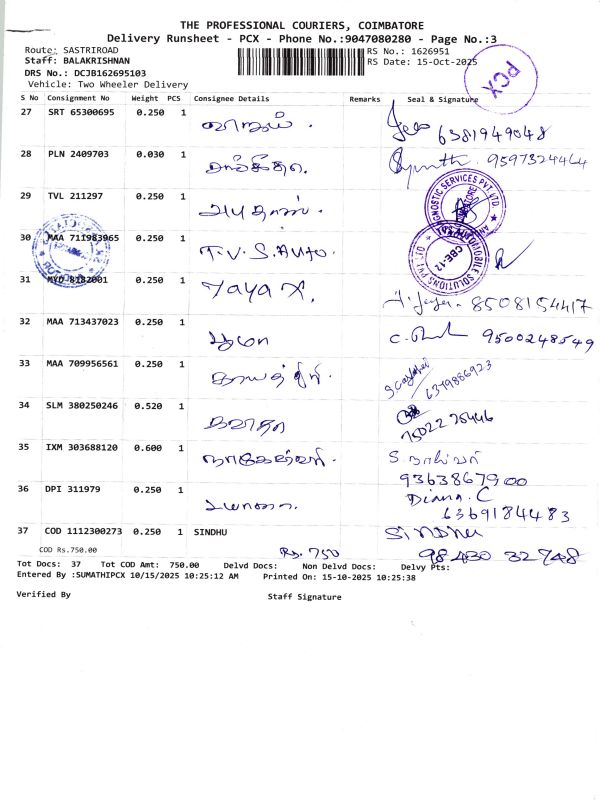 THE PROFESSIONAL COURIERS, COIMBATORE
Delivery Runsheet - PCX - Phone No.:9047080280 - Page No.:3
Route: SASTRIROAD RS No.: 1626951
Staff: BALAKRISHNAN RS Date: 15-Oct-2025
DRS No.: DCJB162695103
Vehicle: Two Wheeler Delivery
PCX
S No Consignment No Weight PCS Consignee Details Remarks Seal & Signature
27 SRT 65300695 0.250 1 6381949048
28 PLN 2409703 0.030 1 9597324464
29 TVL 211297 0.250 1
30 MAA 711983965 0.250 1 T.V.S. Auto.
TVS AUTOMOBILE SOLUTIONS PVT LTD CBE-12
31 0.250 1 Jaya 8508154417
32 MAA 713437023 0.250 1 பூமா 9500248549
33 MAA 709956561 0.250 1 காயத்ரி. 6379886923
34 SLM 380250246 0.520 1 கவிதா 75022 75446
35 IXM 303688120 0.600 1 9363867900
36 DPI 311979 0.250 1 டயானா. Diana. C
6369184483
37 COD 1112300273 0.250 1 SINDHU Sindhu
COD Rs.750.00 Rs. 750 98430 32748
Tot Docs: 37 Tot COD Amt: 750.00 Delvd Docs: Non Delvd Docs: Delvy Pts:
Entered By :SUMATHIPCX 10/15/2025 10:25:12 AM Printed On: 15-10-2025 10:25:38
Verified By Staff Signature